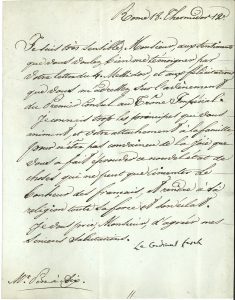 Rome 18. Thermidor 12.
Je suis très sensible, Monsieur, aux sentiments
que vous voulez bien me témoigner par
votre lettre du 4. Messidor, et aux félicitations
que vous m'adressez sur l'avènement
du Premier Consul au Trône Impérial.
Je connais trop les principes qui vous
animent, et votre attachement à la famille
pour n'être pas convaincu de la joie que
vous a fait éprouver ce nouvel état de
choses qui ne peut que cimenter le
bonheur des français et rendre à la
religion toute sa force et son éclat.
Je vous prie, Monsieur, d'agréer mes
sincères salutations.
Le Cardinal Fesch
Mr. à Aix.